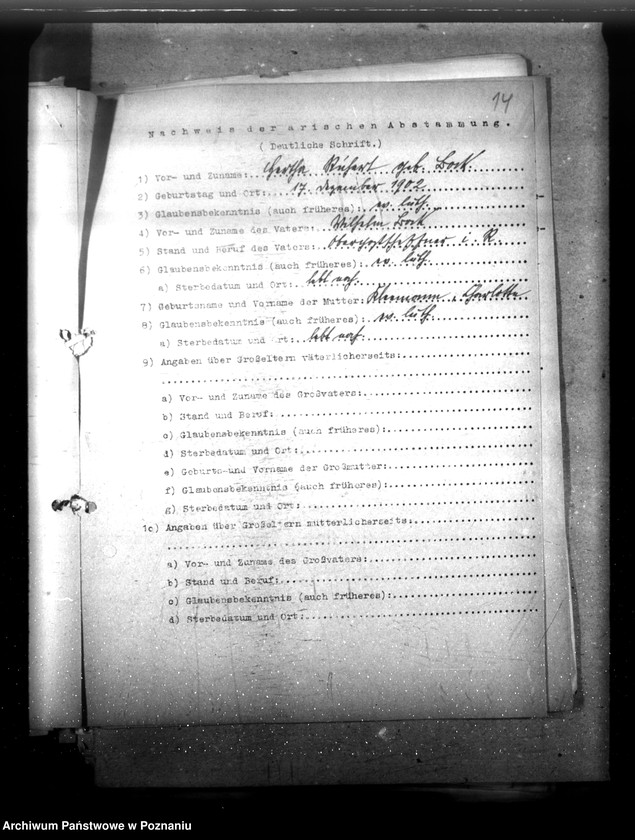 14
Nachweis der arischen Abstammung.
(Deutliche Schrift.)
1) Vor- und Zuname:..Hertha Rühert geb. Bock
2) Geburtstag und Ort:...17. Dezember 1902
3) Glaubensbekenntnis (auch früheres):..ev. luth.
4) Vor- und Zuname des Vaters:..Wilhelm Bock
5) Stand und Beruf des Vaters:..Oberpostschaffner i. R.
6) Glaubensbekenntnis (auch früheres):..ev. luth.
a) Sterbedatum und Ort:..lebt noch.
7) Geburtsname und Vorname der Mutter:Kleemann, Charlotte
8) Glaubensbekenntnis (auch früheres):..ev. luth.
a) Sterbedatum und Ort:..lebt noch.
9) Angaben über Großeltern väterlicherseits:
a) Vor- und Zuname des Großvaters:
b) Stand und Beruf:
c) Glaubensbekenntnis (auch früheres):
d) Sterbedatum und Ort:
e) Geburts-und Vorname der Großmutter:
f) Glaubensbekenntnis (auch früheres):
g) Sterbedatum und Ort:
1o) Angaben über Großeltern mütterlicherseits:
a) Vor- und Zuname des Großvaters:
b) Stand und Beruf:
c) Glaubensbekenntnis (auch früheres):
d) Sterbedatum und Ort:
Archiwum Państwowe w Poznaniu